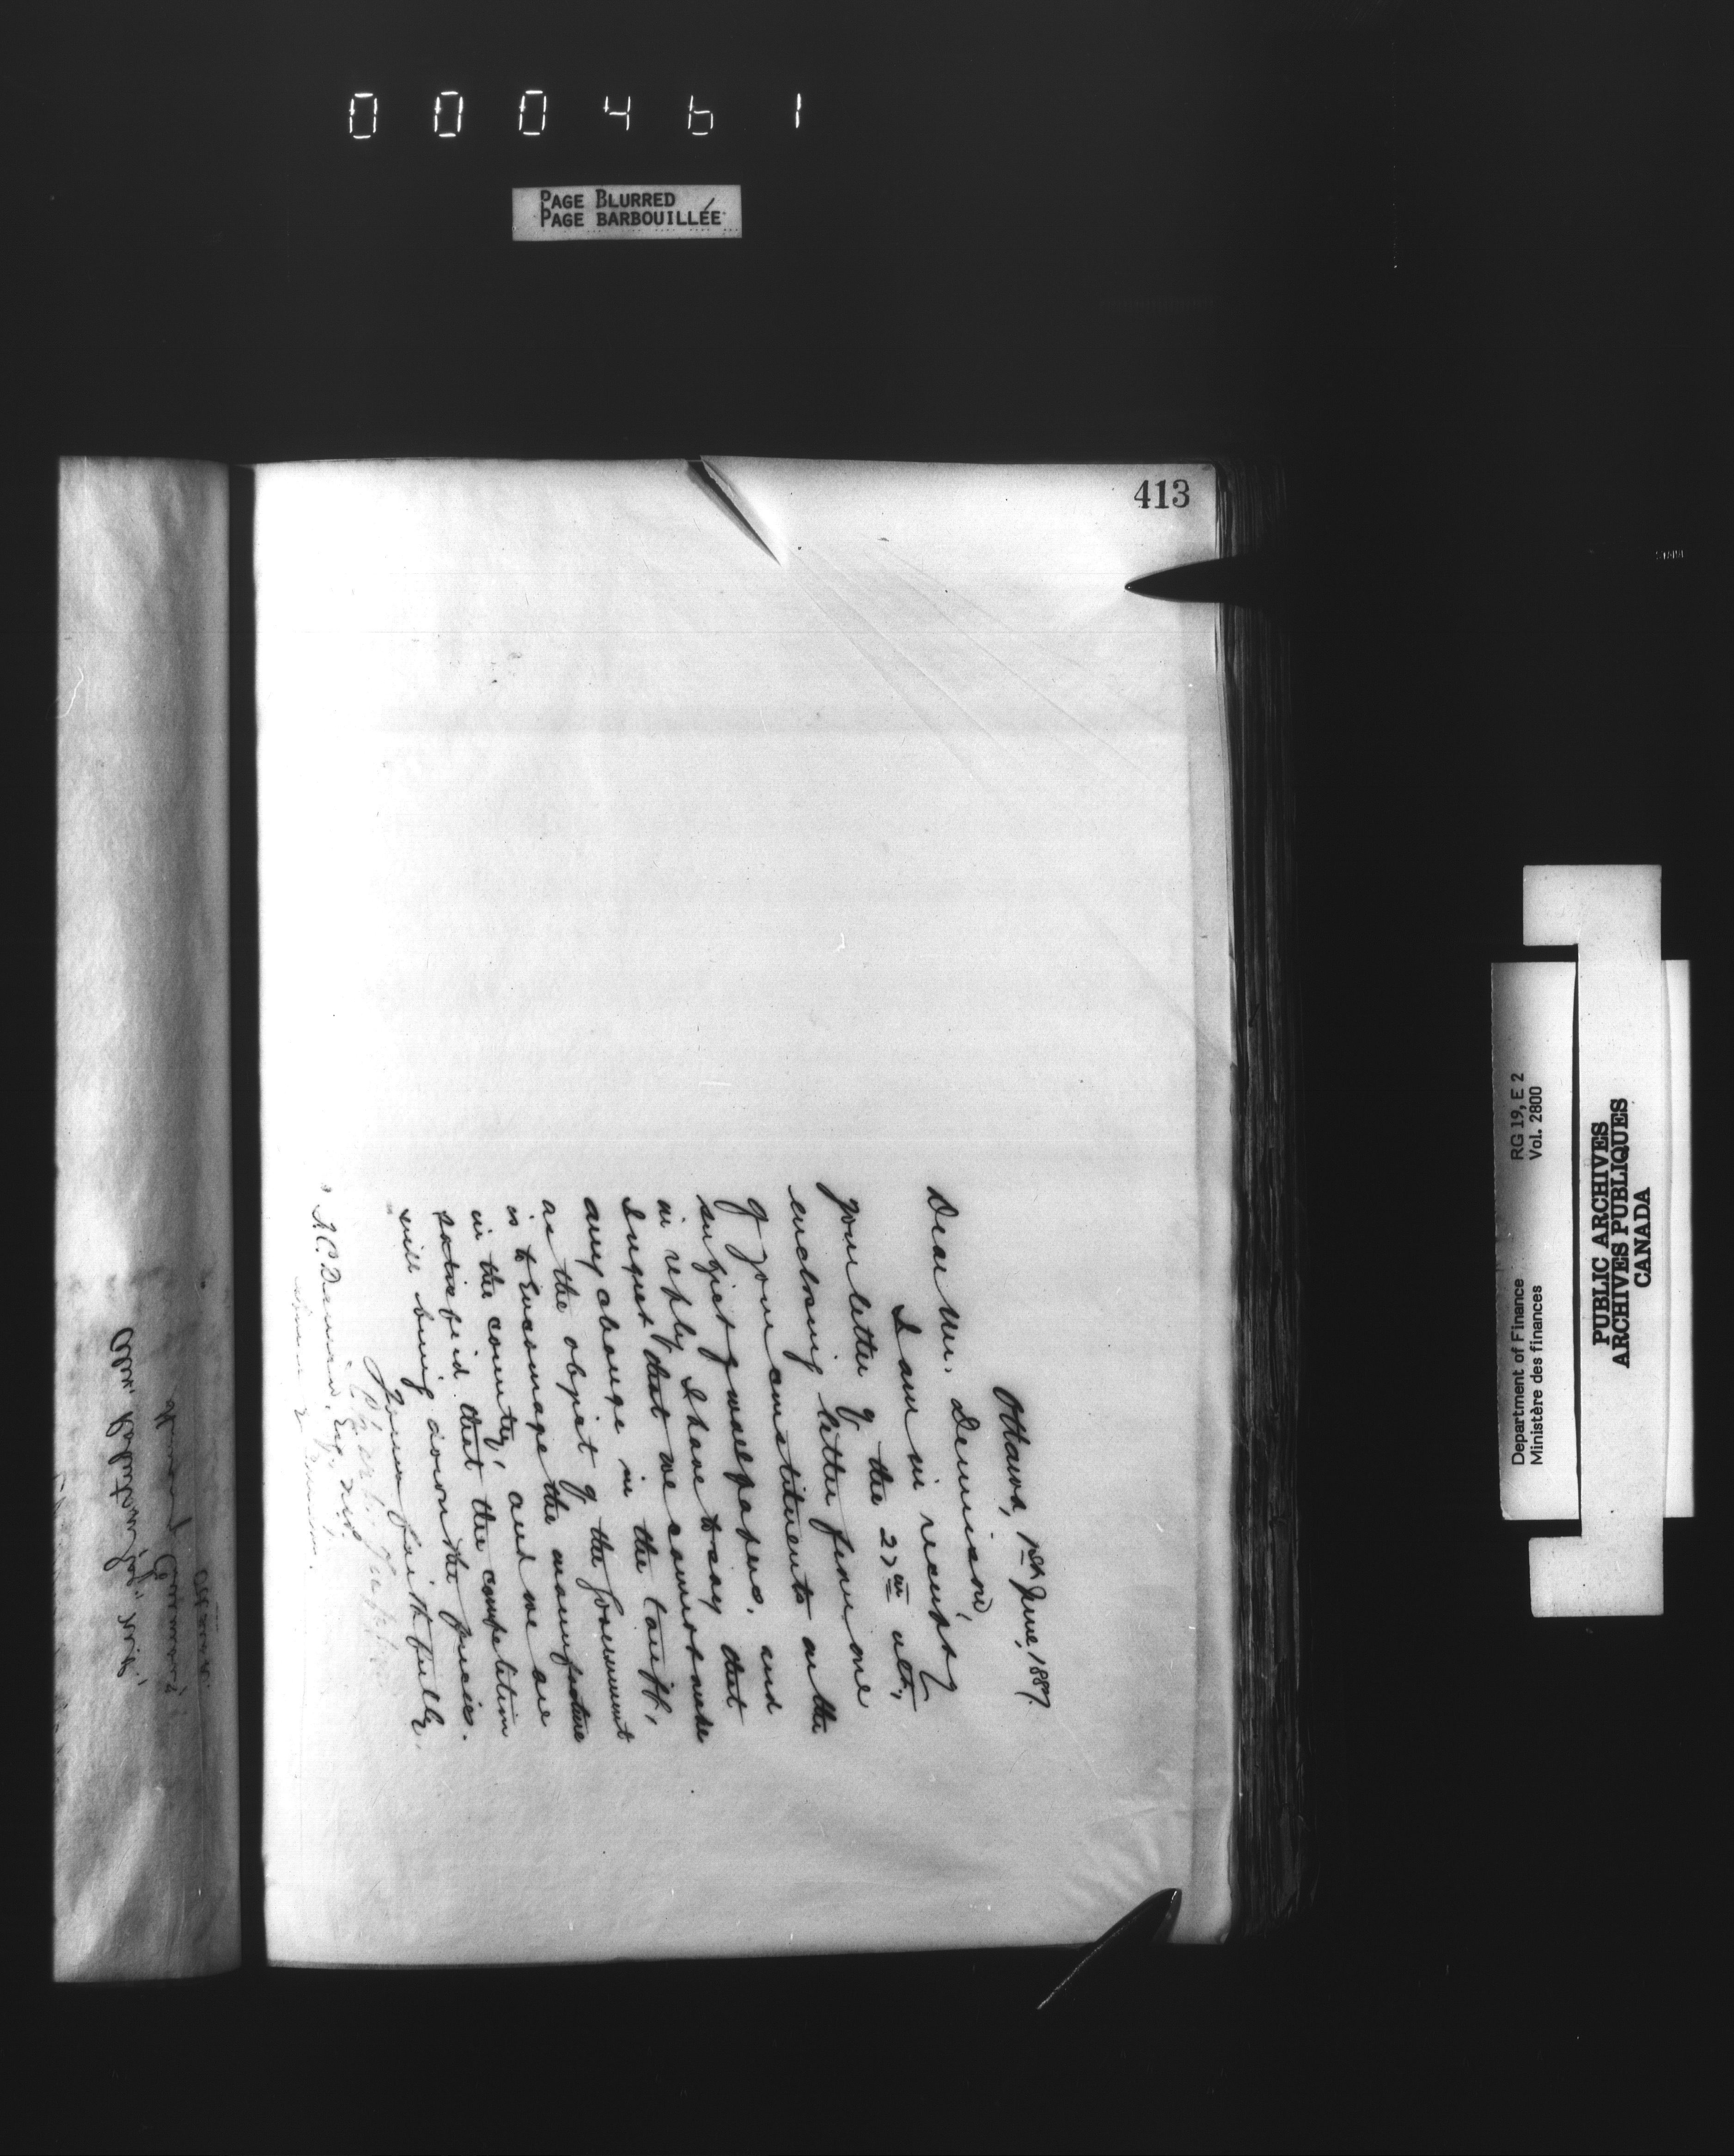 000461
PAGE BLURRED
PAGE BARBOUILLÉE
413
Ottawa, 1st June, 1887.
Dear Mr. Denison,
I am in receipt of
your letter of the 27th ulto,
enclosing letter from one
of your constituents on the
subject of wallpapers, and
in reply I have to say that
I suggest that we cannot make
any change in the tariff,
as the object of the Government
is to encourage the manufacture
in the country, and we are
satisfied that the competition
will bring down the prices.
Yours faithfully,
F. C. Denison, Esq., M.P.
Department of Finance RG 19, E 2
Ministère des finances Vol. 2800
PUBLIC ARCHIVES
ARCHIVES PUBLIQUES
CANADA